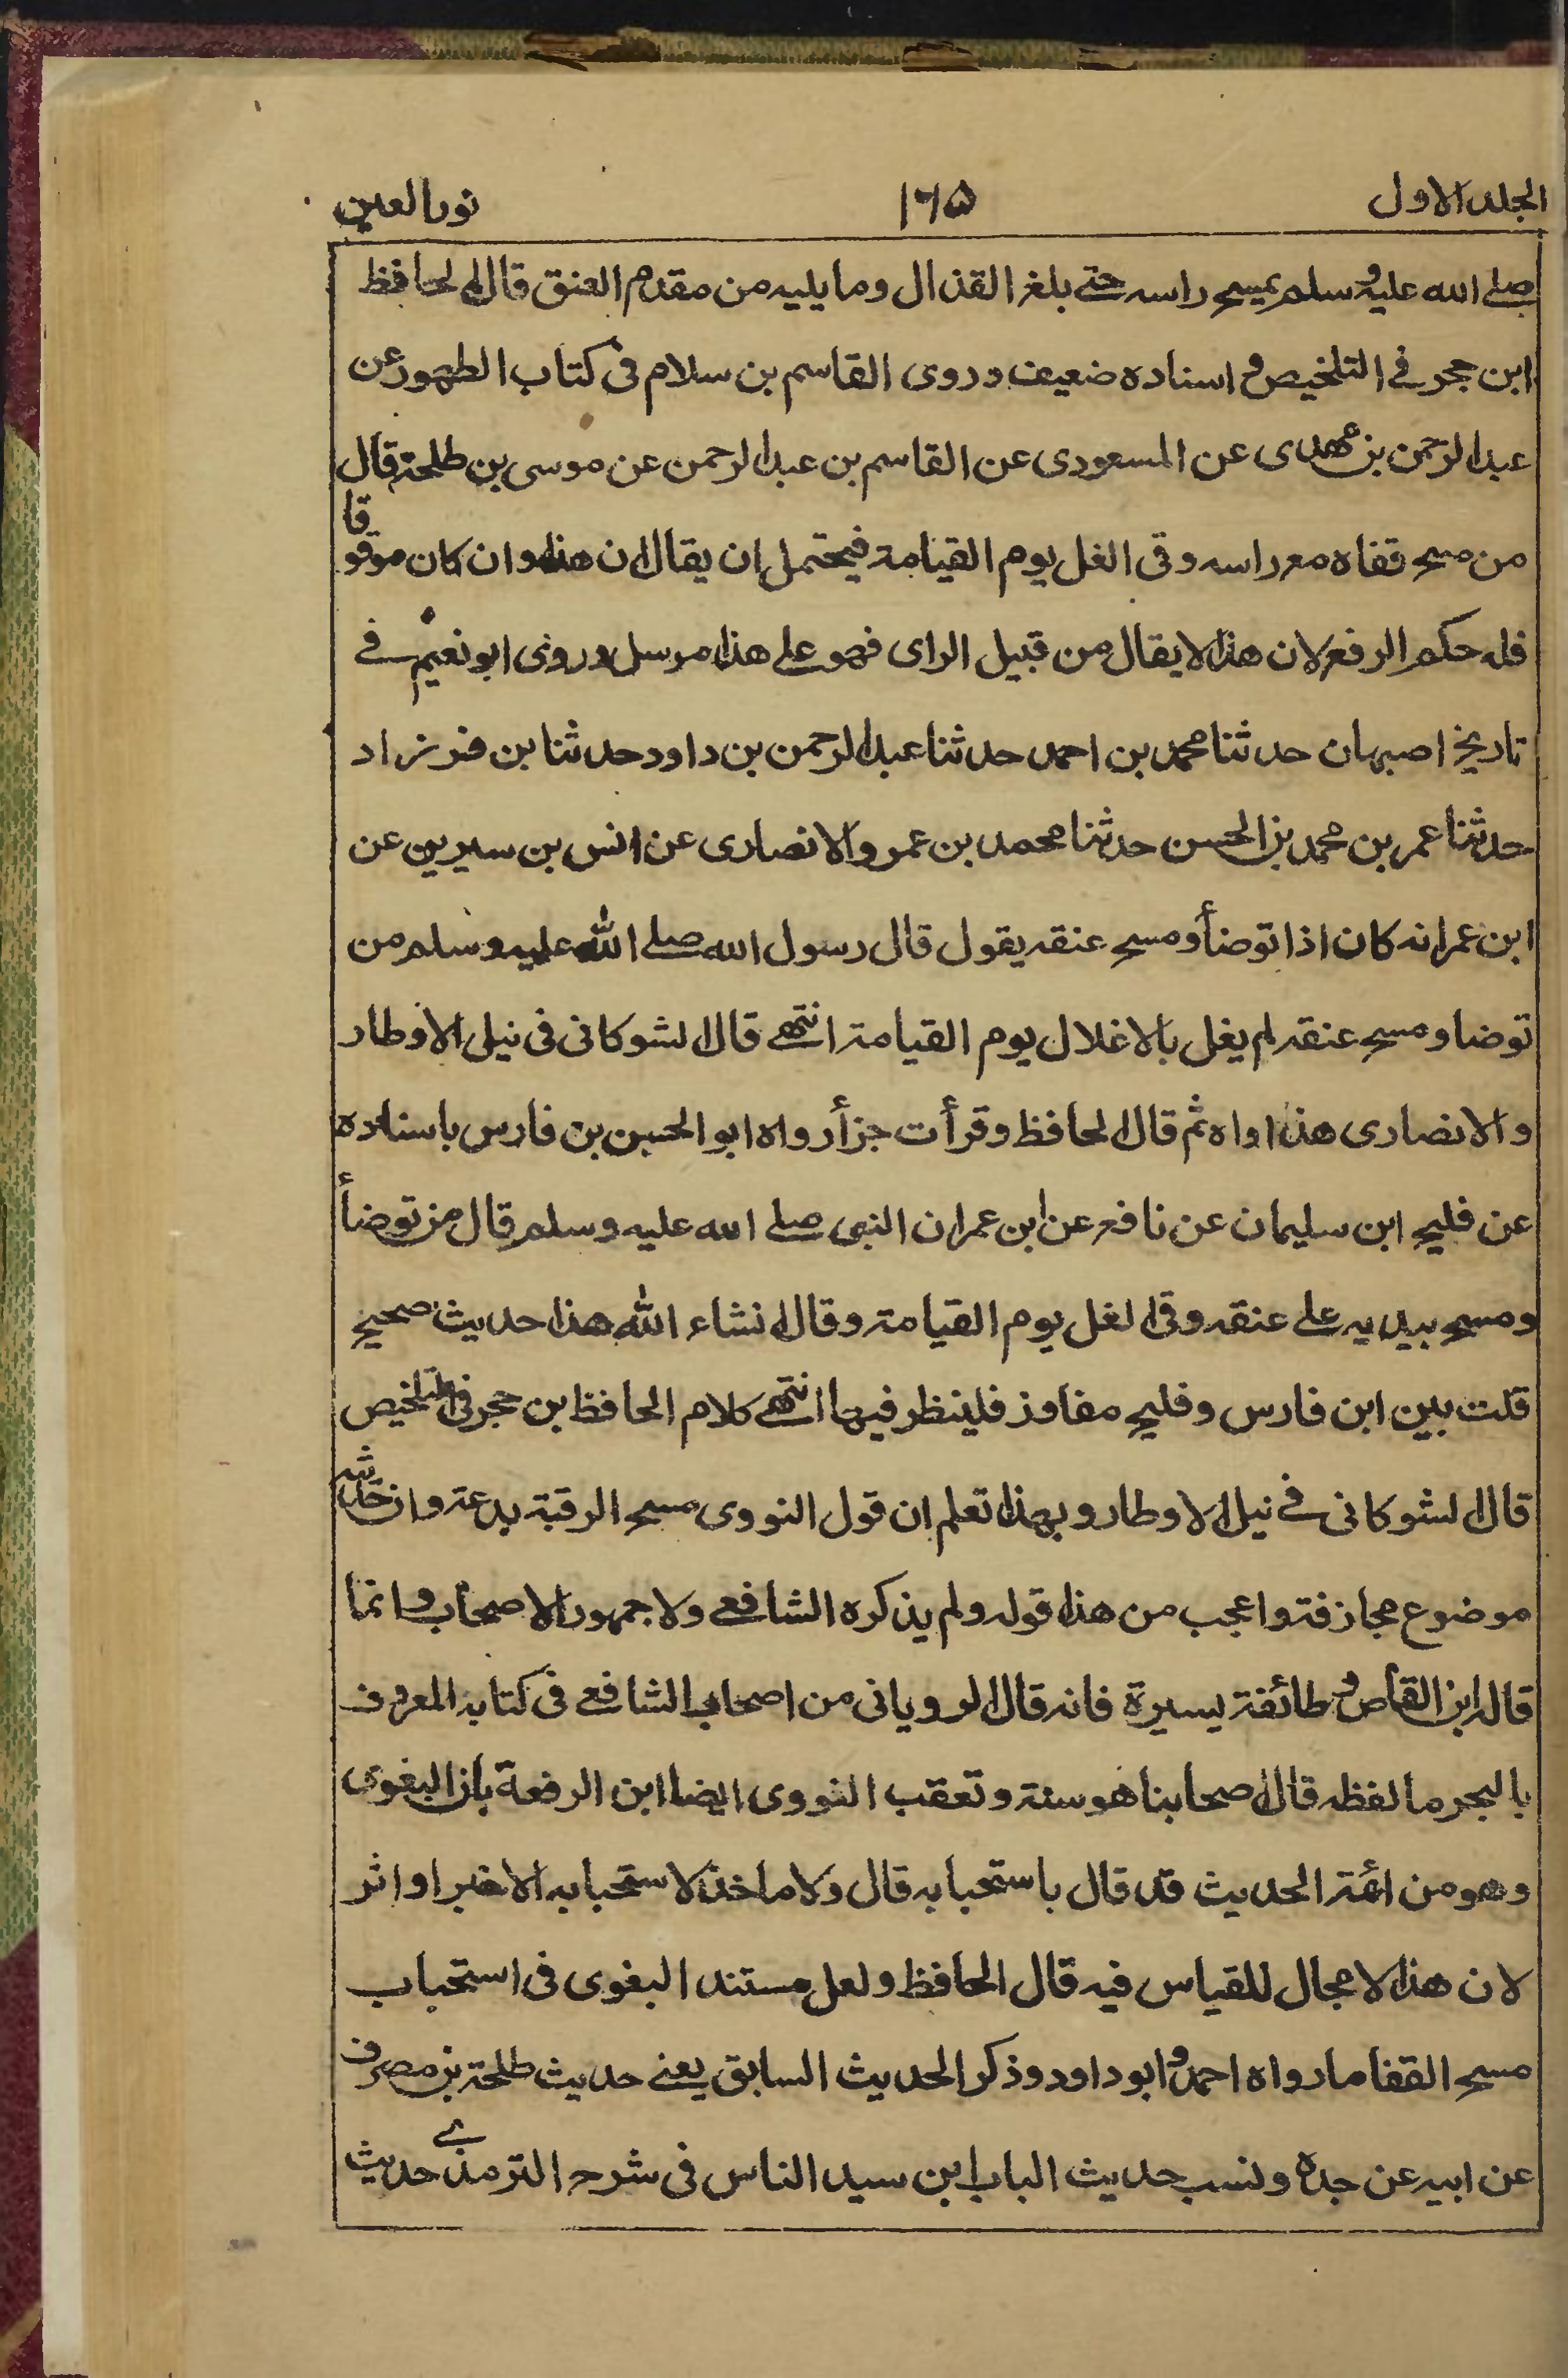 الجلد الاول ١٦٥ نور العين
صلے الله عليه وسلم يمسح راسه حتے بلغ القذال وما يليه من مقدم العنق قال الحافظ
ابن حجر في التلخيص و اسناده ضعيف وروى القاسم بن سلام فى كتاب الطهور عن
عبد الرحمن بن مهدى عن المسعودى عن القاسم بن عبد الرحمن عن موسى بن طلحة قال
من مسح قفاه مع راسه وقى الغل يوم القيامة فيحتمل ان يقال ان هذا وان كان موقوفا
فله حكم الرفع لان هذا لا يقال من قبيل الراى فهو على هذا مرسل وروى ابو نعيم في
تاريخ اصبهان حدثنا محمد بن احمد حدثنا عبد الرحمن بن داود حدثنا بن خرزاد
حدثنا عمر بن محمد بن الحسن حدثنا محمد بن عمرو الانصارى عن انس بن سيرين عن
ابن عمر انه كان اذا توضأ ومسح عنقه يقول قال رسول الله صلے الله عليه وسلم من
توضا ومسح عنقه لم يغل بالاغلال يوم القيامة انتهے قال الشوكانى فى نيل الاوطار
والانصارى هذا اواه ثم قال الحافظ وقرأت جزأ رواه ابو الحسين بن فارس باسناده
عن فليح ابن سليمان عن نافع عن ابن عمر ان النبى صلے الله عليه وسلم قال من توضأ
ومسح بيديه على عنقه وقى الغل يوم القيامة وقال انشاء الله هذا حديث صحيح
قلت بين ابن فارس وفليح مفاوز فلينظر فيها انتهے كلام الحافظ بن حجر فى التلخيص
قال الشوكانى في نيل الاوطار وبهذا تعلم ان قول النووى مسح الرقبة بدعة وان حديثه
موضوع مجازفة واعجب من هذا قوله ولم يذكره الشافعے ولا جمهور الاصحاب وانما
قاله ابن القاص و طائفة يسيرة فانه قال الرويانى من اصحاب الشافعے فى كتابه المعروف
بالبحر ما لفظه قال اصحابنا هو سنة وتعقب النووى ايضا ابن الرفعة بان البغوى
وهو من ائمة الحديث قد قال باستحبابه قال ولا ماخذ لاستحبابه الا خبر او اثر
لان هذا لا مجال للقياس فيه قال الحافظ ولعل مستند البغوى فى استحباب
مسح القفا ما رواه احمد و ابو داود وذكر الحديث السابق يعنے حديث طلحة بن مصرف
عن ابيه عن جده ونسب حديث الباب ابن سيد الناس فى شرح الترمذے حديث